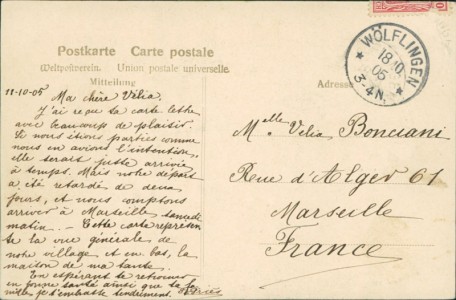 Postkarte Carte postale
Weltpostverein. Union postale universelle.
Mitteilung
Adresse
WÖLFLINGEN
18.10.
05
3-4N.
11-10-05 Ma chère Vélia.
J'ai reçu ta carte lettre
avec beaucoup de plaisir.
Si nous étions parties comme
nous en avions l'intention,
elle serait juste arrivée
à temps. Mais notre départ
a été retardé de deux
jours, et nous comptons
arriver à Marseille samedi
matin. - Cette carte représen
te la vue générale de
notre village et en bas, la
maison de ma tante.
En espérant te retrouver
en bonne santé ainsi que ta fa
mille je t'embrasse tendrement.
Melle Vélia Bonciani
Rue d'Alger 61
Marseille
France